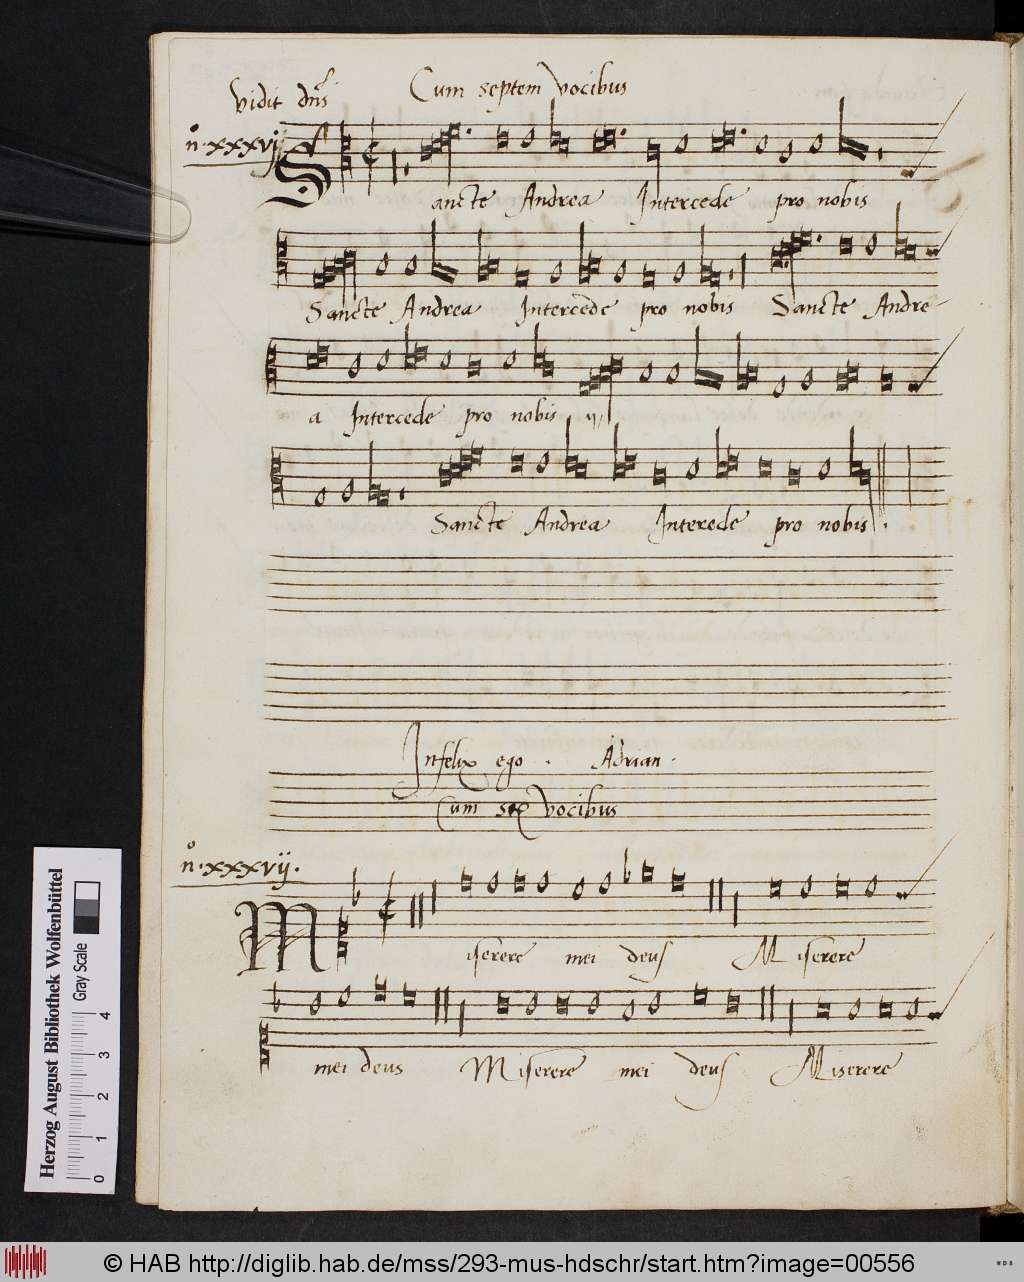 vidit dn̄s Cum septem vocibus
no. xxxvj
Sancte Andrea Intercede pro nobis
Sancte Andrea Intercede pro nobis Sancte Andre-
a Intercede pro nobis . ij.
Sancte Andrea Intercede pro nobis .
Infelix ego . Adrian .
Cum sex vocibus
no. xxxvij.
Miserere mei deus Miserere
mei deus Miserere mei deus Miserere
Herzog August Bibliothek Wolfenbüttel
Gray Scale
0 1 2 3 4
© HAB http://diglib.hab.de/mss/293-mus-hdschr/start.htm?image=00556
WDB